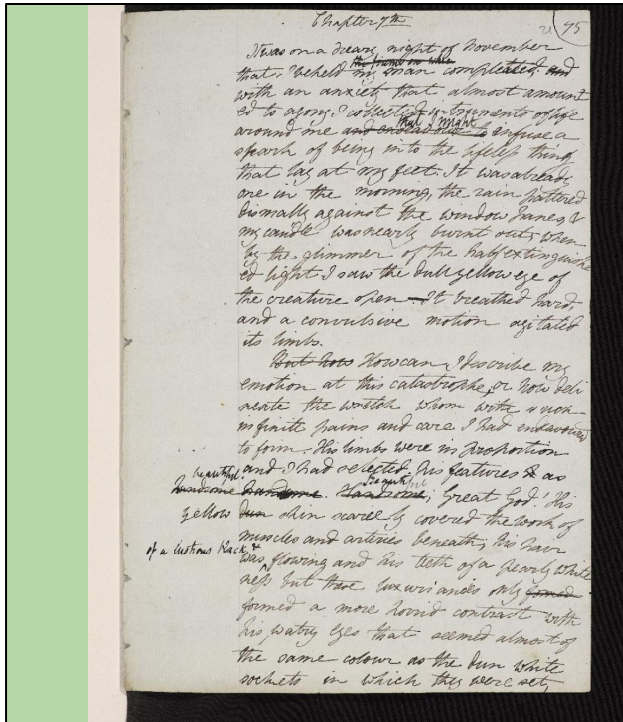 Chapter 7th
21 95
It was on a dreary night of November
the frame on whic
that I beheld my man compleated and
with an anxiety that almost amount
ed to agony I collected instruments of life
that I might
around me and endeavour to infuse a
spark of being into the lifeless thing
that lay at my feet. It was already
one in the morning, the rain pattered
dismally against the window panes, &
my candle was nearly burnt out, when
by the glimmer of the half extinguish
ed light I saw the dull yellow eye of
the creature open – It breathed hard,
and a convulsive motion agitated
its limbs.
But how How can I describe my
emotion at this catastrophe; or how deli
neate the wretch whom with such
infinite pains and care I had endeavoured
to form. His limbs were in proportion
and I had selected his features & as
beautiful. Beautiful
handsome handsome. Handsome; Great God! His
yellow dun skin scarcely covered the work of
muscles and arteries beneath; his hair
of a lustrous black, &
was flowing and his teeth of a pearly white
ness but these luxuriances only formed
formed a more horrid contrast with
his watry eyes that seemed almost of
the same colour as the dun white
sockets in which they were set,